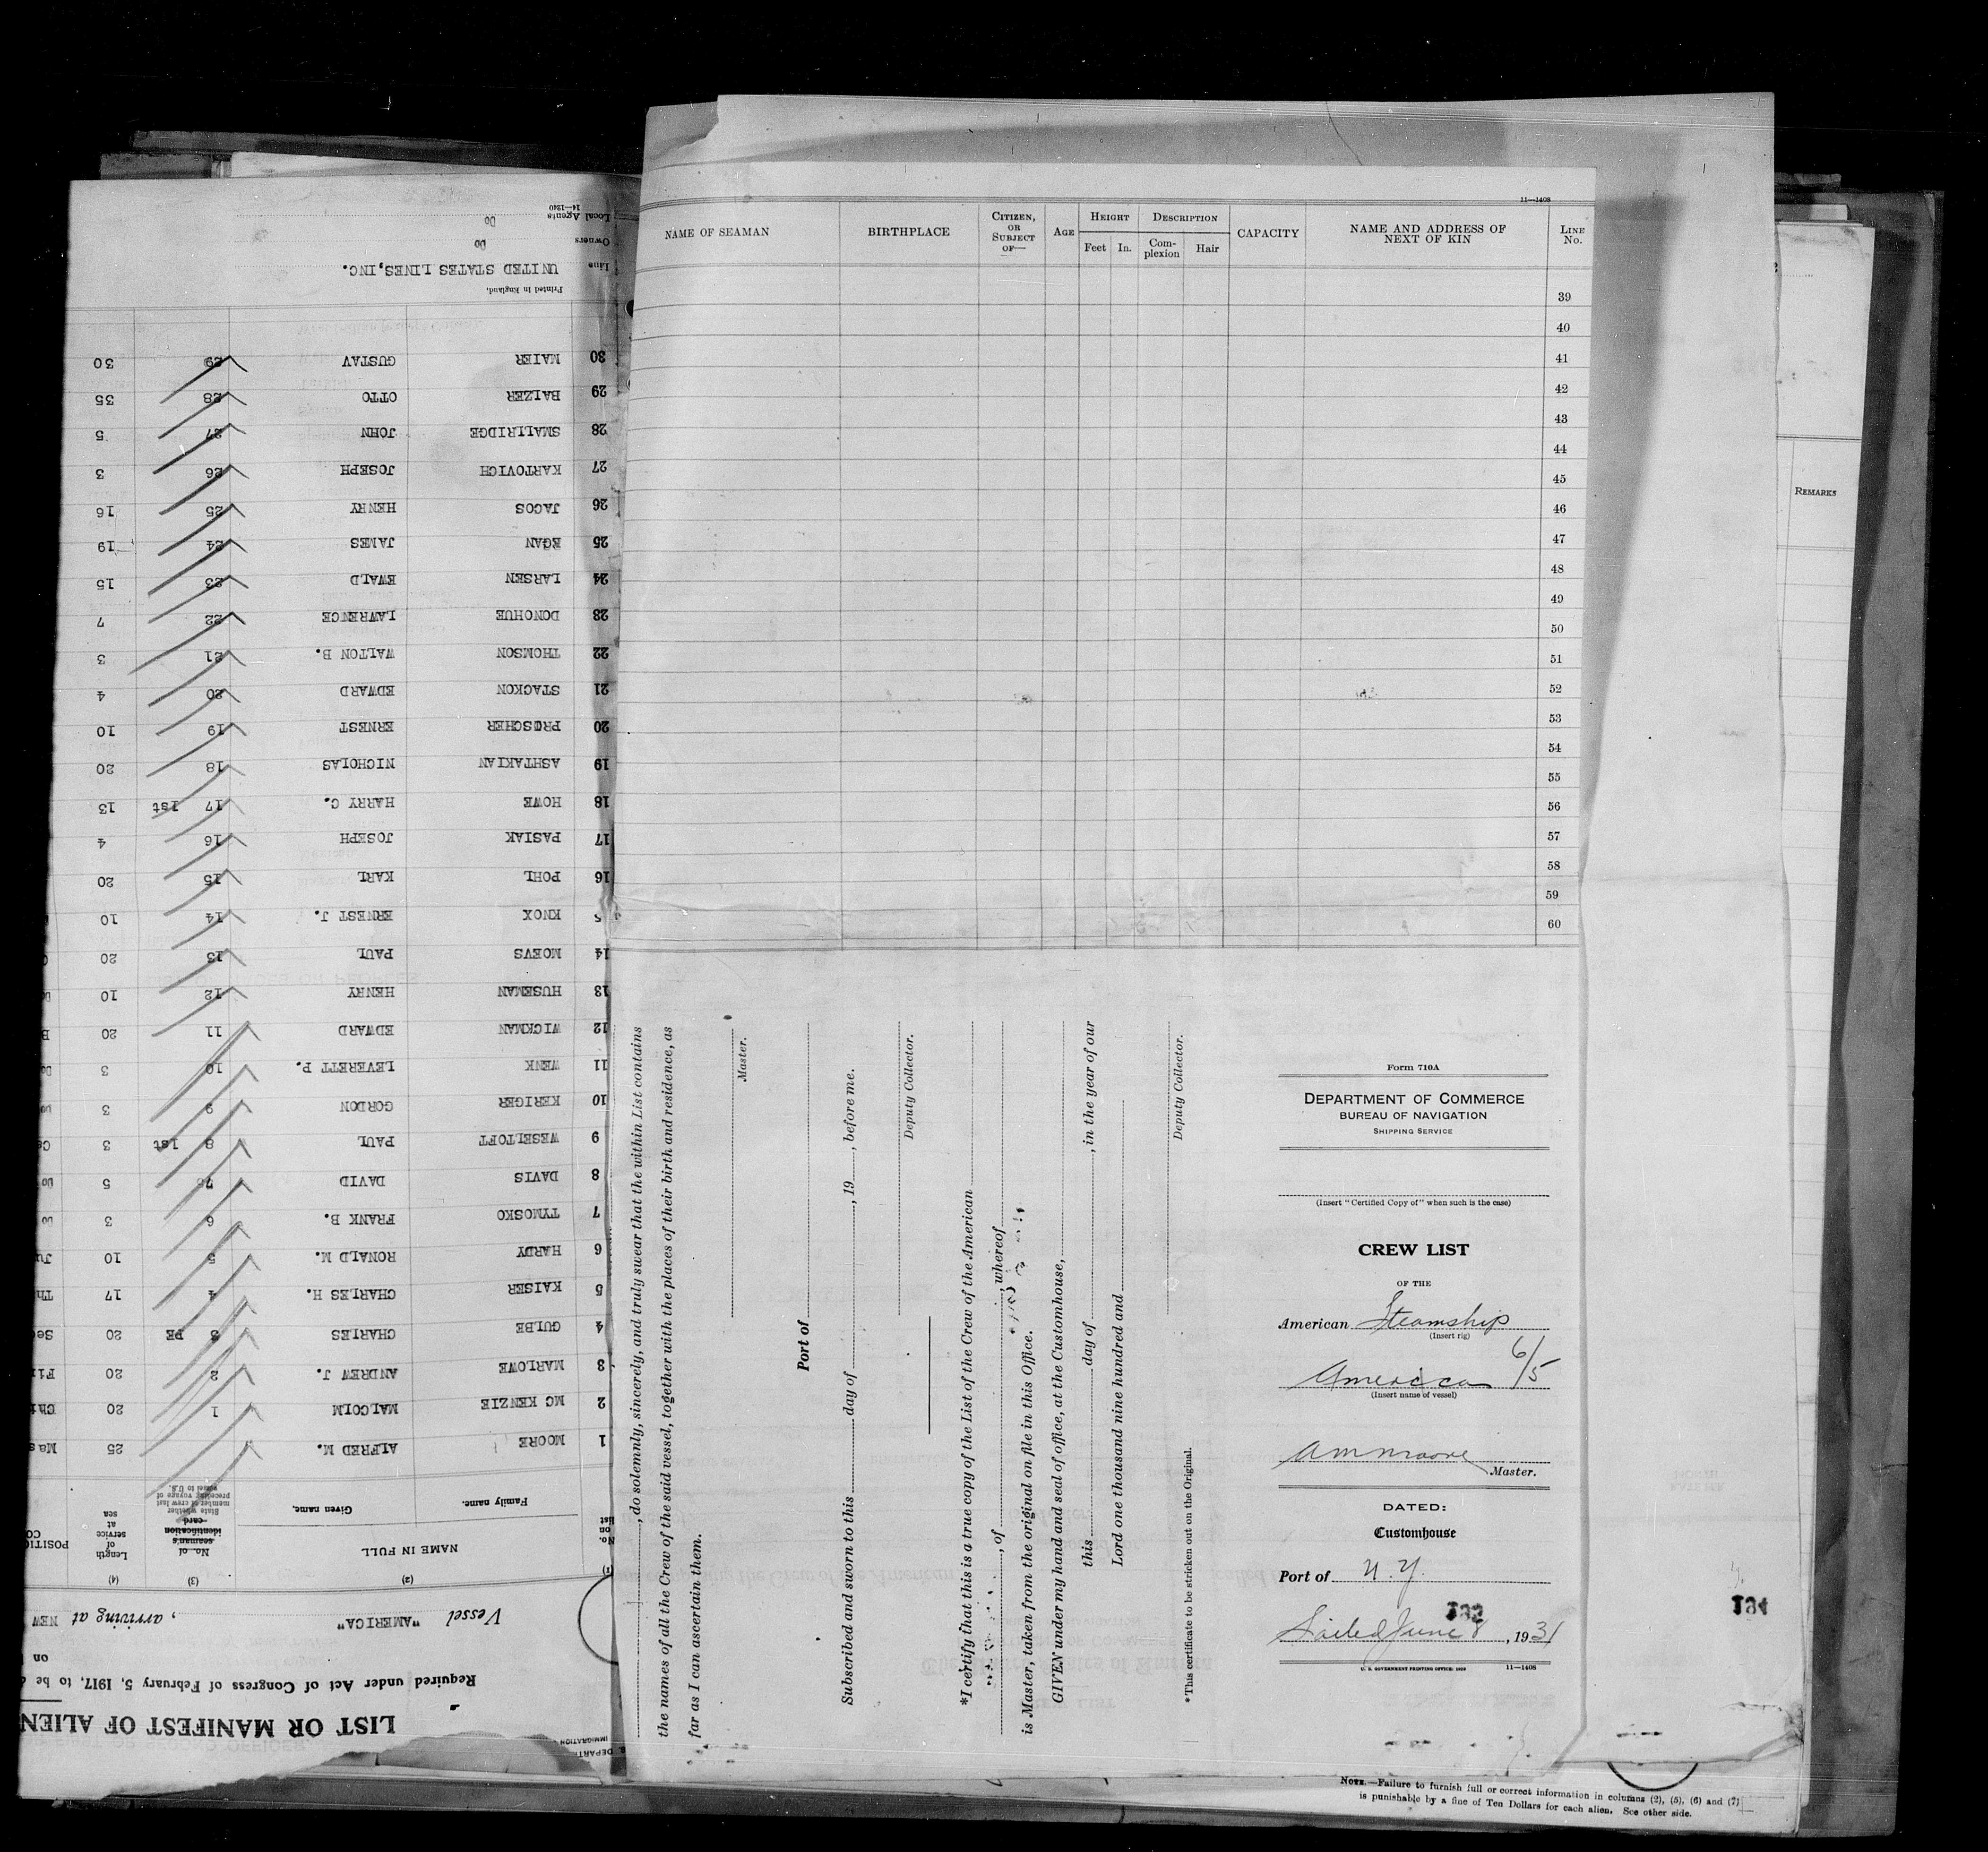 LIST OR MANIFEST OF ALIEN
Required under Act of Congress of February 5, 1917, to be
on
Vessel "AMERICA" , arriving at NEW
(1) (2) (3) (4)
No. on list NAME IN FULL No. of seaman's identification card State whether member of crew last preceding voyage of vessel to U.S. Length of service at sea POSITIO CO
Family name. Given name.
1 MOORE ALFRED M. 25 Mas
2 MC KENZIE MALCOLM 1 20 Chi
3 MARLOWE ANDREW J. 2 20 Fi
4 GULBE CHARLES 3 PE 20 Sec
5 KAISER CHARLES H. 4 17 Th
6 HARDY RONALD M. 5 10 Ju
7 TYMOSKO FRANK B. 6 3 Do
8 DAVIS DAVID 7 5 Do
9 WESELTOFT PAUL 8 1st 3 Ca
10 KERIGER GORDON 9 3 Do
11 WENK LEVERETT P. 10 3 Do
12 WICKMAN EDWARD 11 20 B
13 HUSEMAN HENRY 12 10
14 MOEVS PAUL 13 20
5 KNOX ERNEST J. 14 10
16 POHL KARL 15 20
17 PASIAK JOSEPH 16 4
18 HOWE HARRY C. 17 1st 13
19 ASHTAKIAN NICHOLAS 18 20
20 PROSCHER ERNEST 19 10
21 STACKON EDWARD 20 4
22 THOMSON WALTON B. 21 3
23 DONOHUE LAWRENCE 22 7
24 LARSEN EWALD 23 15
25 EGAN JAMES 24 19
26 JACOS HENRY 25 16
27 KARTOVICH JOSEPH 26 3
28 SMALLRIDGE JOHN 27 5
29 BALZER OTTO 28 35
30 MAIER GUSTAV 29 30
Printed in England.
Line UNITED STATES LINES, INC.
Owners Do
Local Agents Do
14—1240
11—1408
NAME OF SEAMAN BIRTHPLACE CITIZEN, OR SUBJECT OF— AGE HEIGHT DESCRIPTION CAPACITY NAME AND ADDRESS OF NEXT OF KIN LINE No.
Feet In. Complexion Hair
39
40
41
42
43
44
45
46
47
48
49
50
51
52
53
54
55
56
57
58
59
60
, do solemnly, sincerely, and truly swear that the within List contains
the names of all the Crew of the said vessel, together with the places of their birth and residence, as
far as I can ascertain them.
Master.
Port of
Subscribed and sworn to this day of , 19 , before me.
Deputy Collector.
*I certify that this is a true copy of the List of the Crew of the American
, of , whereof
is Master, taken from the original on file in this Office.
GIVEN under my hand and seal of office, at the Customhouse,
this day of , in the year of our
Lord one thousand nine hundred and
Deputy Collector.
*This certificate to be stricken out on the Original.
Form 710A
DEPARTMENT OF COMMERCE
BUREAU OF NAVIGATION
SHIPPING SERVICE
(Insert "Certified Copy of" when such is the case)
CREW LIST
OF THE
American Steamship
(Insert rig)
America 6/5
(Insert name of vessel)
AM Moore
Master.
DATED:
Customhouse
Port of N.Y.
133
Sailed June 8, 1931
U. S. GOVERNMENT PRINTING OFFICE: 11—1408
REMARKS
134
NOTE.—Failure to furnish full or correct information in columns (2), (5), (6) and (7)
is punishable by a fine of Ten Dollars for each alien. See other side.